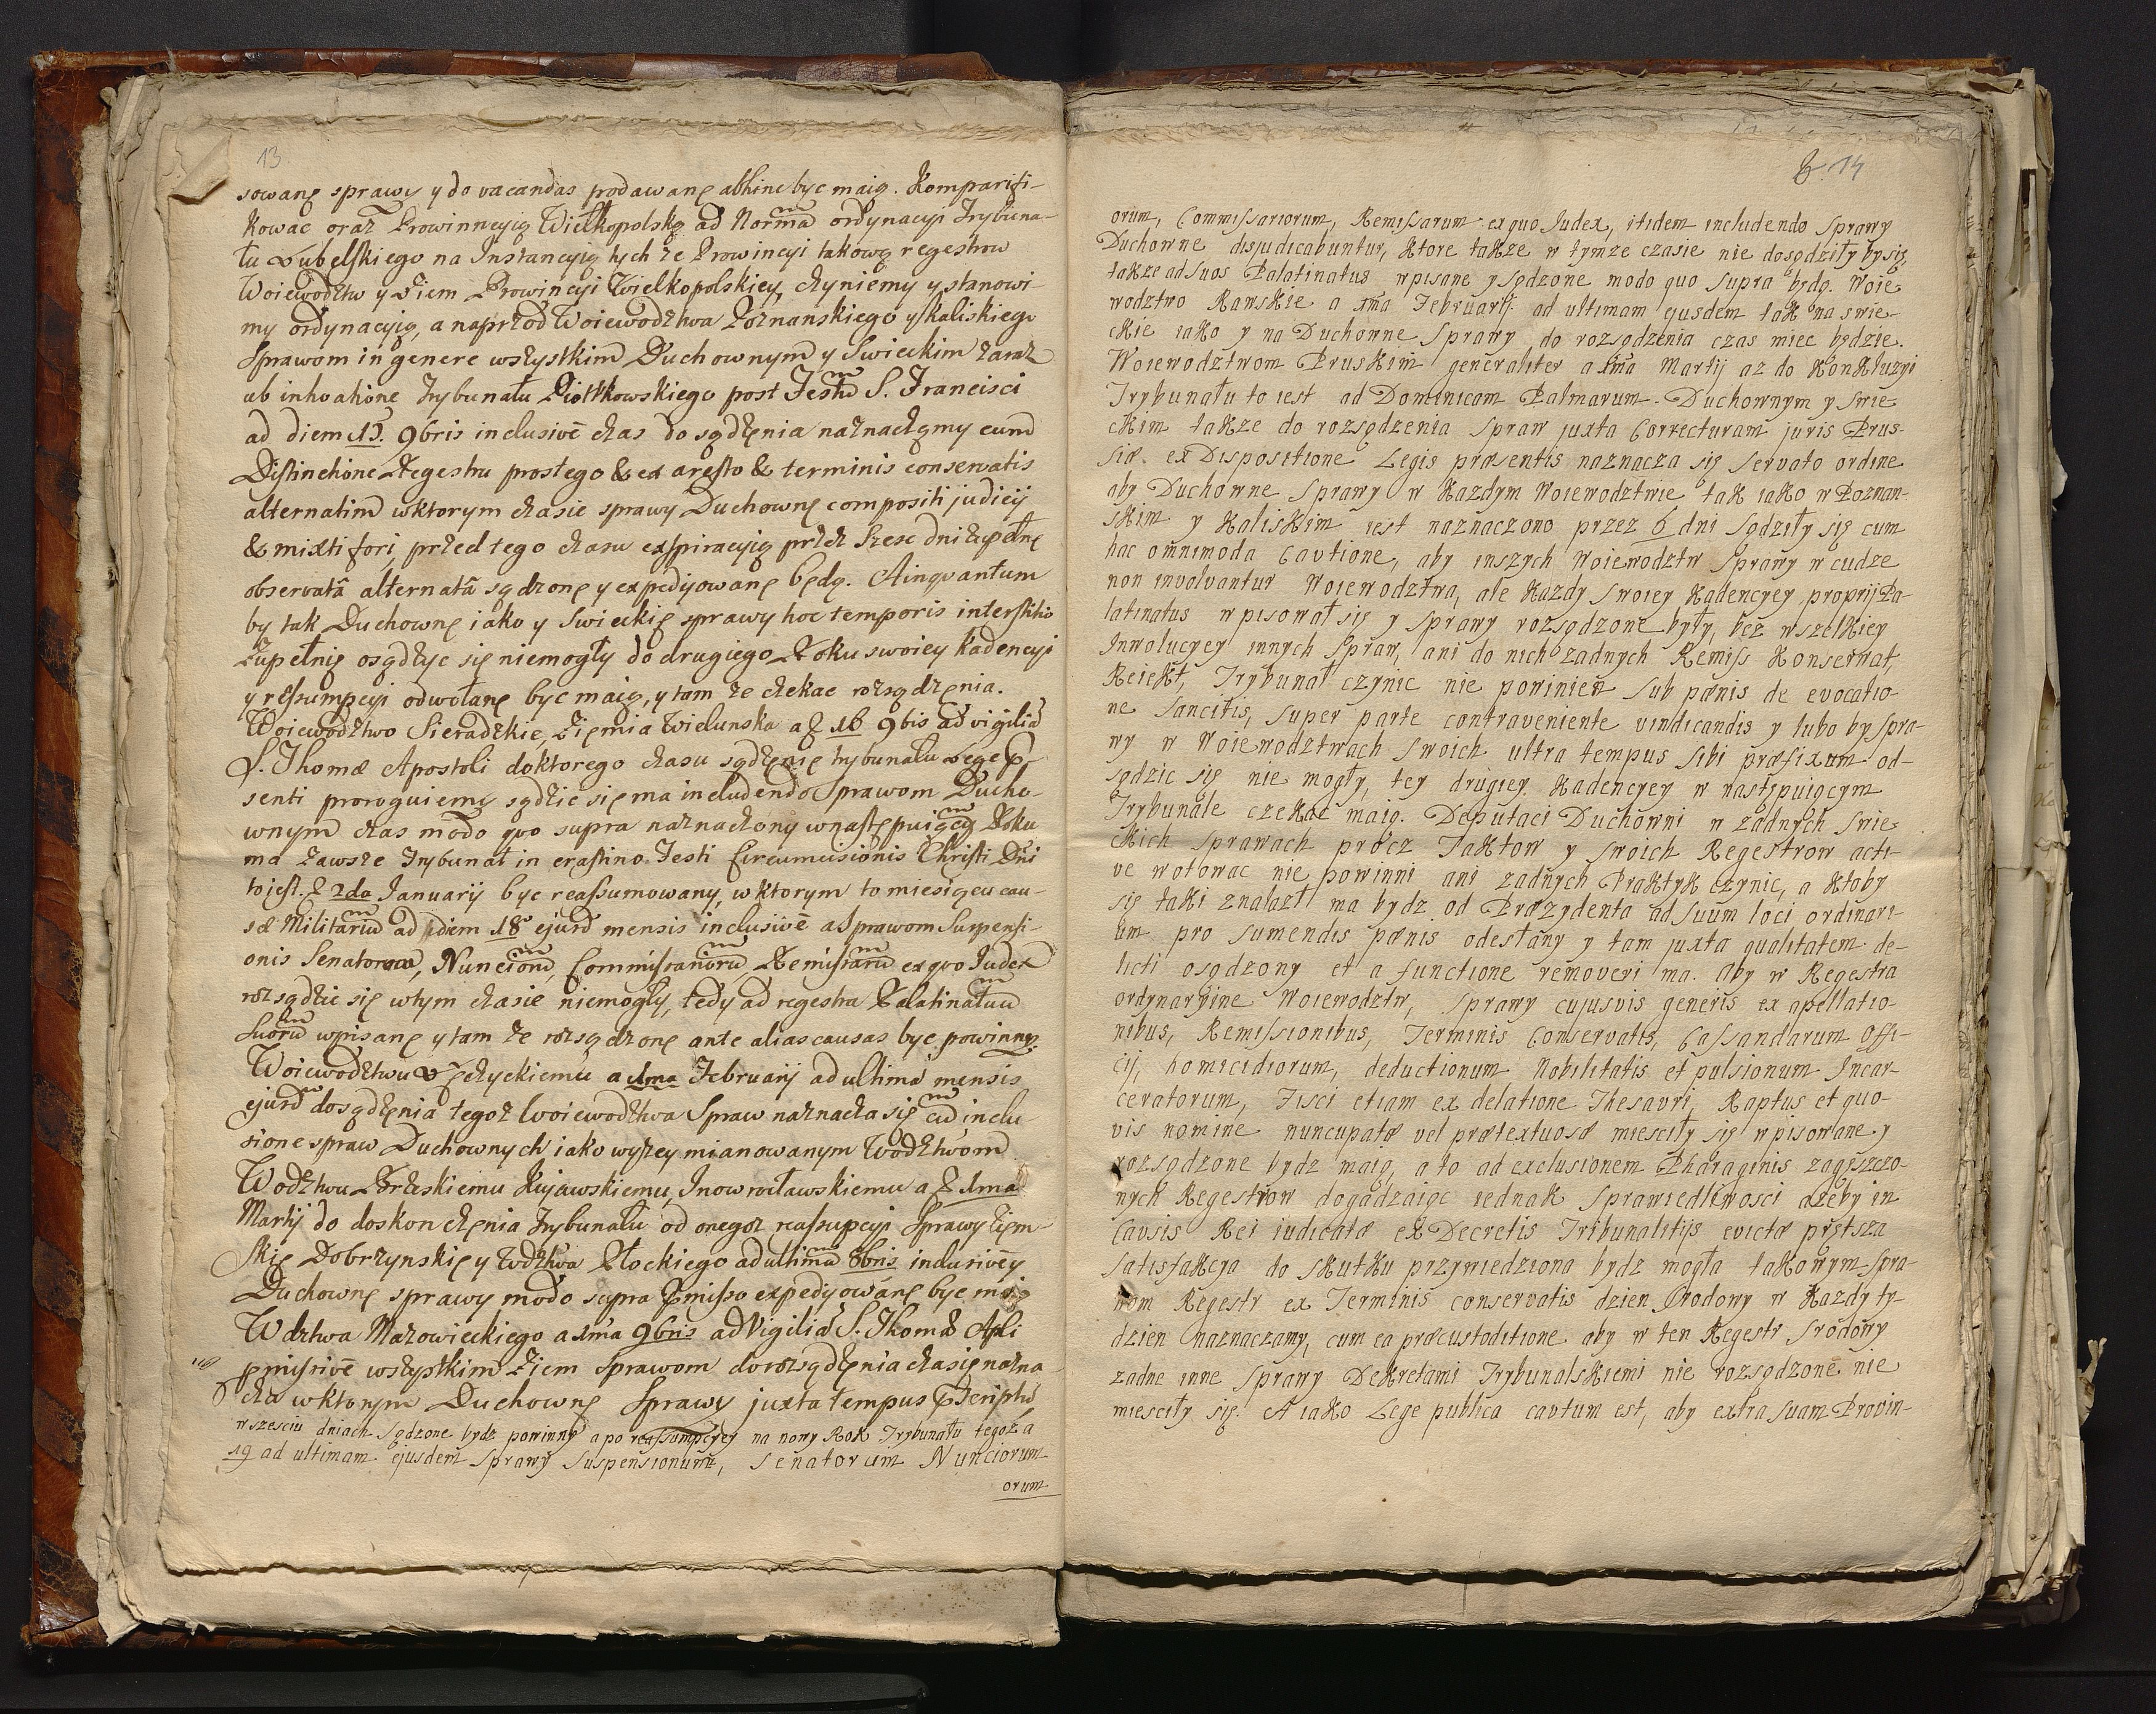 13
sowanę sprawy y do vacandas podawanę abhinc byc maią. Komparifi-
kowac oraz Prowinncyią Wielkopolską ad Norma ordynacyi Trybuna-
łu Lubelskiego na Instancyią tych że Prowincyi takową regestrow
Woiewodztw y Ziem Prowincyi Wielkopolskiey, czyniemy y stanowi-
my ordynacyią, a naprzod Woiewodztwa Poznanskiego y Kaliskiego
Sprawom in genere wszystkim Duchownym y Swieckim zaraz
ab inhoatione Trybunału Piotrkowskiego post Festũ S. Francisci
ad diem 15. 9bris inclusivē czas do sądzęnia naznaczęmy cum
Distinctione Regestru prostego & ex aręsto & terminis conservatis
alternatim w ktorym czasie sprawy Duchownę compositi judicij
& mixti fori, przed tego czasu exspiracyią przez Szesc dni zupełnę
observatâ alternatâ sądzonę y expedyowanę będą. A inqvantum
by tak Duchownę iako y Swieckię sprawy hoc temporis interstitio
Zupełnię osądzyc się niemogły do drugiego Roku swoiey kadencyi
y reſsumpcyi odwołanę byc maią, y tam że czekac rozsądzęnia.
Woiewodztwo Sieradzkie, Ziemia Wielunska a 16 9bis ad vigiliã
S. Thomæ Apostoli do ktorego czasu sądzęnię trybunału Lege præ-
senti proroguiemy sądzic się ma includendo Sprawom Ducho-
wnym czas modo quo supra naznaczony w nastę puiącym Roku
ma zawsze Trybunał in crastino Festi Circumcisionis Christi Dñi
to jest. 2da Januarij byc reaſsumowany, w ktorym to miesiącu cau-
sæ Militariũ ad diem 18 ejusd mensis inclusivē a Sprawom Suspensi-
onis Senatorũ, Nunciorũ, Commiſsariorũ Remiſsarũ ex quo Judex
rozsądzic się w tym czasie niemogły, tedy ad regestra Palatinatuũ
Suorũ wpisanę y tam że rozsądzonę ante alias causas byc powinny.
Woiewodztwu Łęczyckiemu a 1ma Februarij ad ultimã mensis
ejusd do sądzęnia tegoz Woiewodztwa Spraw naznacza się cũ inclu
sione spraw Duchownych iako wyżey mianowanym Wodztwom
Wodztwu Brzeskiemu Kujawskiemu, Inowrocławskiemu a 1ma
Martij do doskonczęnia Trybunału od onegoz reaſsupcyi Sprawy Ziem-
skię Dobrzynskię y Wdztwa Płockiego ad ultimã 8bris inclusivē y
Duchownę sprawy modo supra præmiſso expedyowanę byc maią
Wdztwa Mazowieckiego a 1ma 9bris ad Vigiliã S. Thomæ Apli
præmiſsivē wszystkim Ziem Sprawom do rozsądzęnia czasię nazna
cza w ktorym Duchownę Sprawy juxta tempus præscriptũ
w szesciu dniach sądzone bydz powinny a po reaſsumpcyey na nowy Rok Trybunału tegoż a
19 ad ultimam ejusdem Sprawy Suspensionum, Senatorum Nunciorum
orum
14
orum, Commiſsariorum, Remiſsarum ex quo Judex, itidem includendo Sprawy
Duchowne disjudicabuntur, Ktore takze w tymze czasie nie dosądziły by się
takze ad Suos Palatinatus wpisane y sądzone modo quo supra będą. Woie
wodztwo Rawskie a 1ma Februarij ad ultimam ejusdem tak na swie-
ckie iako y na Duchowne Sprawy do rozsądzenia czas miec będzie.
Woiewodztwom Pruskim generaliter a 1ma Martij az do Konkluzyi
Trybunału to iest ad Dominicam Palmarum. Duchownym y Swie
ckim takze do rozsądzenia Spraw juxta Correcturam juris Prus-
siæ. ex Dispositione Legis præsentis naznacza się servato ordine
aby Duchowne Sprawy w Kazdym Woiewodztwie tak iako w Poznan-
skim y Kaliskim iest naznaczono przez 6 dni Sądziły się cum
hac omnimoda Cautione, aby inszych Woiewodztw Sprawy w cudze
non involvantur Woiewodztwa, ale Kazdy Swoiey Kadencyey proprij Pa-
latinatus w pisował się y Sprawy rozsądzone były, bez wszelkiey
Inwolucyey innych Spraw, ani do nich zadnych Remiſs Konserwat,
Reiekt, Trybunał czynic nie powinien sub pænis de evocatio-
ne Sancitis, super parte contraveniente vindicandis y lubo by Spra-
wy w Woiewodztwach Swoich ultra tempus Sibi præfixum od-
sądzic się nie mogły, tey drugiey Kadencyey w następuiącym
Trybunale czekac maią. Deputaci Duchowni w zadnych Swie
ckich Sprawach procz Taktow y Swoich Regestrow acti-
ve wotowac nie powinni ani zadnych Praktyk czynic, a Ktoby
się taki znalazł ma bydz od Prezydenta ad Suum loci ordinari-
um pro Sumendis pænis odesłany y tam juxta qualitatem de-
licti osądzony et a functione removeri ma. Aby w Regestra
ordynaryine Woiewodztw, Sprawy cujusvis generis ex apellatio-
nibus, Remiſsionibus, Terminis Conservatis, Caſsandarum Offi-
cij, homicidiorum, deductionum Nobilitatis et pulsionum Incar-
ceratorum, Fisci etiam ex delatione Thesavri, Raptus et quo-
vis nomine nuncupatæ vel prætextuosæ miesciły się w pisowane y
rozsądzone bydz maią, a to ad exclusionem Pharaginis zagęszczo-
nych Regestrow dogadzaiąc iednak Sprawiedliwosci azeby in
Causis Rei iudicatæ ex Decretis Tribunalitijs evictæ prętsza
Satisfakcya do skutku przywiedziona bydz mogła takowym Spra-
wom Regestr ex Terminis conservatis dzien Srodowy w Kazdy ty-
dzien naznaczamy, cum ea præcustoditione aby w ten Regestr Srodowy
zadne inne Sprawy Dekretami Trybunalskiemi nie rozsądzone nie
miesciły się. A iako Lege publica cavtum est, aby extra Suam Provin-